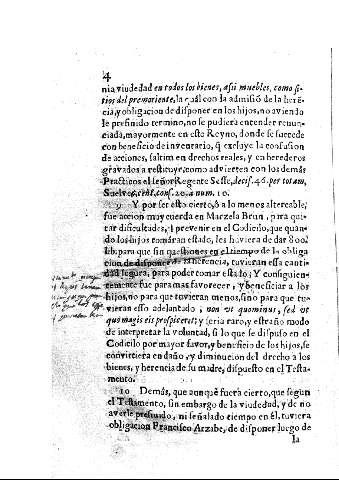 4
nia viudedad en todos los bienes, assi muebles, como si-
tios del premoriente, la quàl con la admissiõ de la herē-
cia, y obligacion de disponer en los hijos, no aviendo
le prefinido termino, no se pudiera entender renun-
ciada, mayormente en este Reyno, donde se sucede
con beneficio de inventario, q̃ excluye la confusion
de acciones, saltim en drechos reales, y en herederos
gravados a restituyr; como advierten con los demás
Practicos el señor Regente Sesse, decis. 46. per totam,
Suelves, cent. cons. 20. a num. 10.
9 Y por ser esto cierto, ò a lo menos altercable,
fue accion muy cuerda en Marzela Brun, para qui-
tar dificultades, el prevenir en el Codicilo, que quan-
do los hijos tomáran estado, les huviera de dar 800
lib. para que sin questiones en el tiempo de la obliga
cion de disponer de la herencia, tuvieran essa canti-
dad segura, para poder tomar estado; Y consiguien-
temente fue para mas favorecer, y beneficiar a los
hijos, no para que tuvieran menos, sino para que tu-
vieran esso adelantado, non vt quominus, sed vt
quo magis eis prospiceret; y seria raro, y estraño modo
de interpretar la voluntad, si lo que se dispuso en el
Codicilo por mayor favor, y beneficio de los hijos, se
convirtiera en daño, y diminucion del drecho a los
bienes, y herencia de su madre, dispuesto en el Testa-
mento.
10 Demás, que aunque fuera cierto, que segun
el Testamento, sin embargo de la viudedad, y de no
averle prefinido, ni señalado tiempo en èl, tuviera
obligacion Francisco Arzabe, de disponer luego de
la